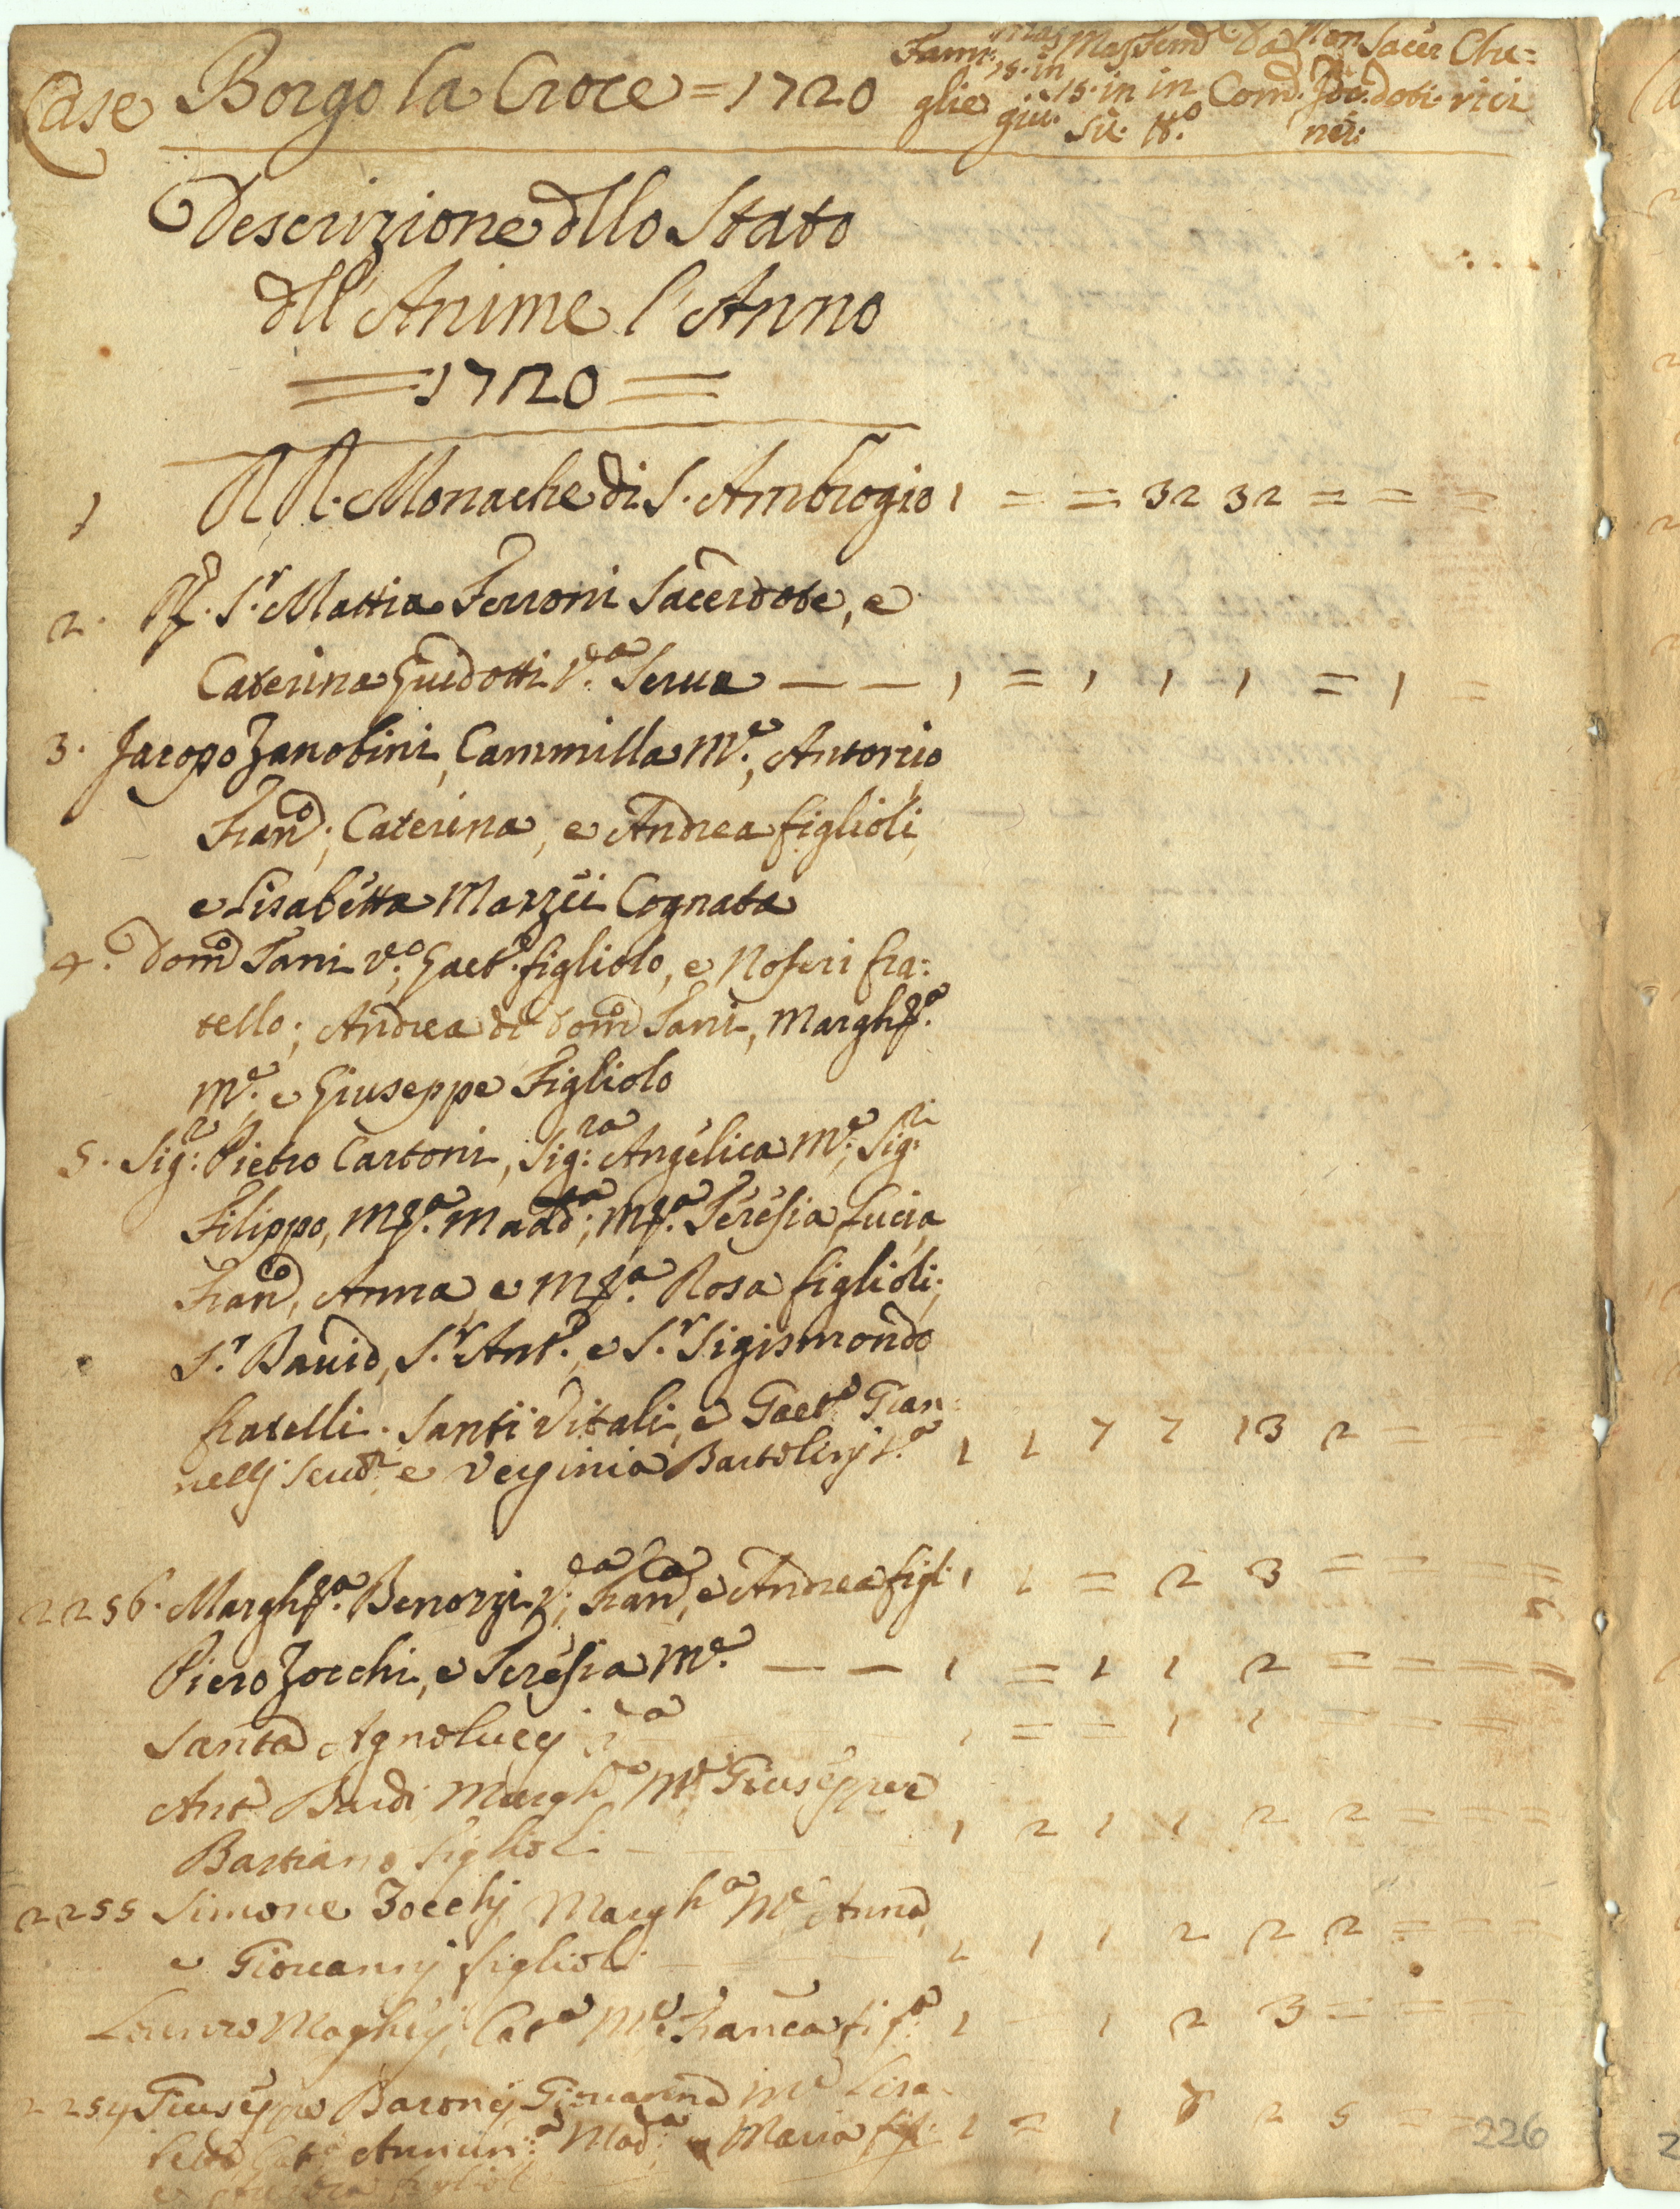 Case Borgo la Croce = 1720 Fami: glie Mas. 15. in giu. Mas. 15. in sù. Fem. in n.º Da Com. Non Com. Sacer doti Che= rici
Descrizione dllo Stato
dll'Anime l'Anno
= 1720 =
1 RR. Monache di S. Ambrogio 1 = = 32 32 = = =
2. Rd. S.r Mattia Ferroni Sacerdote, e
Caterina Guidotti V.da Serua — — 1 = 1 1 1 = 1 =
3. Jacopo Zanobini, Cammilla M.e, Antonio
Fran.co; Caterina, e Andrea figlioli,
e Lisabetta Mazzei Cognata
4. Dom.co Tani V.o; Gaet.o figliolo, e Noferi fra:
tello; Andrea di Dom.co Tani, Margh.ta
M.e, e Giuseppe Figliolo
5. Sig:r Pietro Cartoni, Sig:ra Angelica M.e; Sig:ri
Filippo, M.a Madd.a; M.a Teresia, Lucia,
Fran.co, Anna, e M.a Rosa figlioli;
S.r Dauid, S.r Ant.o, e S.r Sigismondo
fratelli. Santi Vitali, e Gaet.o Gian=
nellj Seru.ri e Verginia Bartolinj S.a 1 1 7 7 13 2 = =
2256. Margh.ta Benozzi V.da; Fran.ca, e Andrea figl. 1 1 = 2 3 = = = =
Piero Zocchi, e Teresia M.e — — 1 = 1 1 2 = = = =
Santa Agnoluccj V.a 1 = = 1 1 = = =
Ant.o Bardi Margh.a M.e Giuseppe e
Bastiano figlioli — 1 2 1 1 2 2 = = =
2255 Simone Zocchj Margh.a M.e Anna,
e Giouannj figlioli 1 1 1 2 2 2 = = =
Cat.a M.e Franca fig.a 1 = 1 2 3 = = =
2254 Giuseppe Baronj Giouanna M.e Lisa=
Annun:a Mad:a e Maria 1 = 1 2 5 = =
226